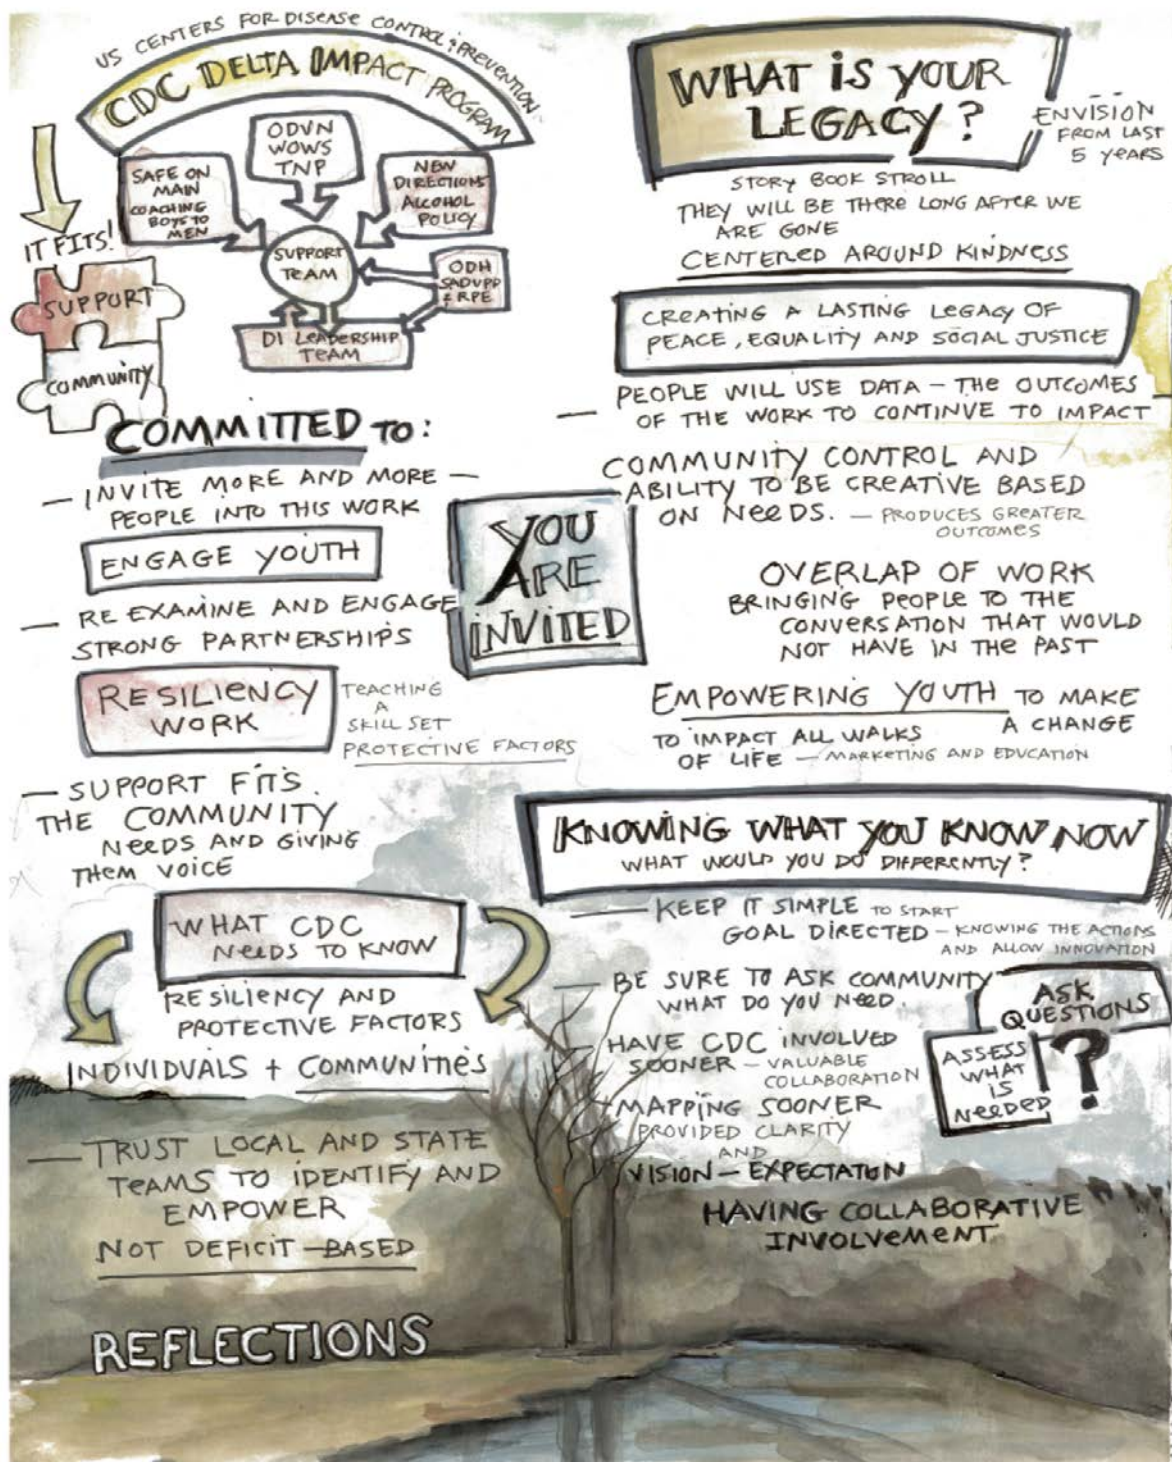 US CENTERS FOR DISEASE CONTROL & PREVENTION
CDC DELTA IMPACT PROGRAM
ODVN
WOWS
TNP
SAFE ON
MAIN
COACHING
BOYS TO
MEN
NEW
DIRECTIONS
ALCOHOL
POLICY
SUPPORT
TEAM
ODH
SADVPP
& RPE
DI LEADERSHIP
TEAM
IT FITS!
SUPPORT
COMMUNITY
COMMITTED TO:
— INVITE MORE AND MORE —
PEOPLE INTO THIS WORK
ENGAGE YOUTH
— RE EXAMINE AND ENGAGE
STRONG PARTNERSHIPS
RESILIENCY
WORK
TEACHING
A
SKILL SET
PROTECTIVE FACTORS
— SUPPORT FITS.
THE COMMUNITY
NEEDS AND GIVING
THEM VOICE
WHAT CDC
NEEDS TO KNOW
RESILIENCY AND
PROTECTIVE FACTORS
INDIVIDUALS + COMMUNITIES
— TRUST LOCAL AND STATE
TEAMS TO IDENTIFY AND
EMPOWER
NOT DEFICIT-BASED
REFLECTIONS
YOU
ARE
INVITED
WHAT IS YOUR
LEGACY?
ENVISION
FROM LAST
5 YEARS
STORY BOOK STROLL
THEY WILL BE THERE LONG AFTER WE
ARE GONE
CENTERED AROUND KINDNESS
CREATING A LASTING LEGACY OF
PEACE, EQUALITY AND SOCIAL JUSTICE
— PEOPLE WILL USE DATA — THE OUTCOMES
OF THE WORK TO CONTINUE TO IMPACT
COMMUNITY CONTROL AND
ABILITY TO BE CREATIVE BASED
ON NEEDS. — PRODUCES GREATER
OUTCOMES
OVERLAP OF WORK
BRINGING PEOPLE TO THE
CONVERSATION THAT WOULD
NOT HAVE IN THE PAST
EMPOWERING YOUTH TO MAKE
A CHANGE
TO IMPACT ALL WALKS
OF LIFE — MARKETING AND EDUCATION
KNOWING WHAT YOU KNOW NOW
WHAT WOULD YOU DO DIFFERENTLY?
— KEEP IT SIMPLE TO START
GOAL DIRECTED — KNOWING THE ACTIONS
AND ALLOW INNOVATION
— BE SURE TO ASK COMMUNITY
WHAT DO YOU NEED.
— HAVE CDC INVOLVED
SOONER — VALUABLE
COLLABORATION
— MAPPING SOONER
PROVIDED CLARITY
AND
VISION — EXPECTATION
HAVING COLLABORATIVE
INVOLVEMENT
ASK
QUESTIONS
ASSESS
WHAT
IS
NEEDED
?